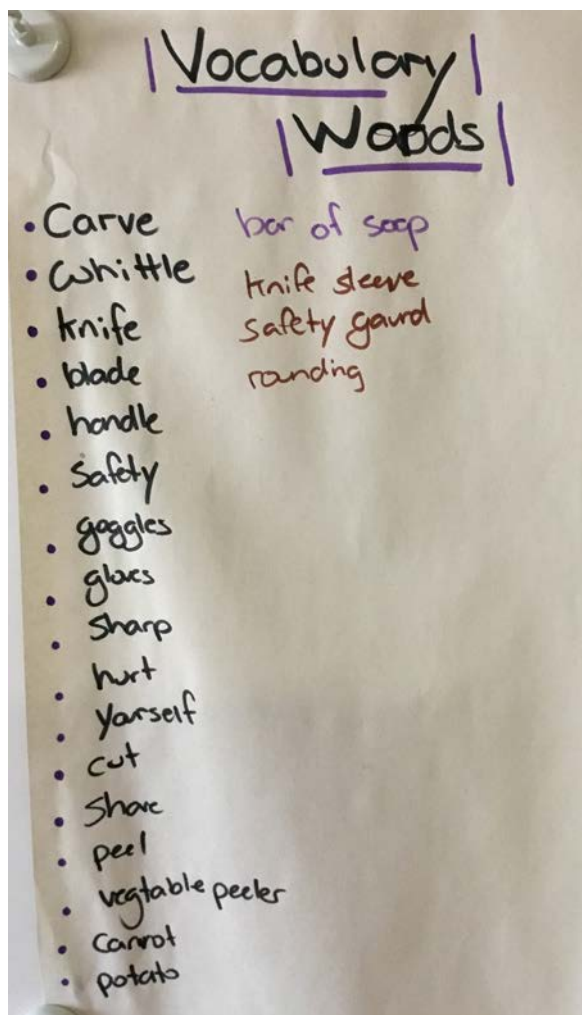 Vocabulary
Words
• Carve
• Whittle
• knife
• blade
• handle
• Safety
• goggles
• gloves
• Sharp
• hurt
• yourself
• cut
• Shave
• peel
• vegtable peeler
• Carrot
• potato
bar of soap
knife sleeve
safety gaurd
rounding